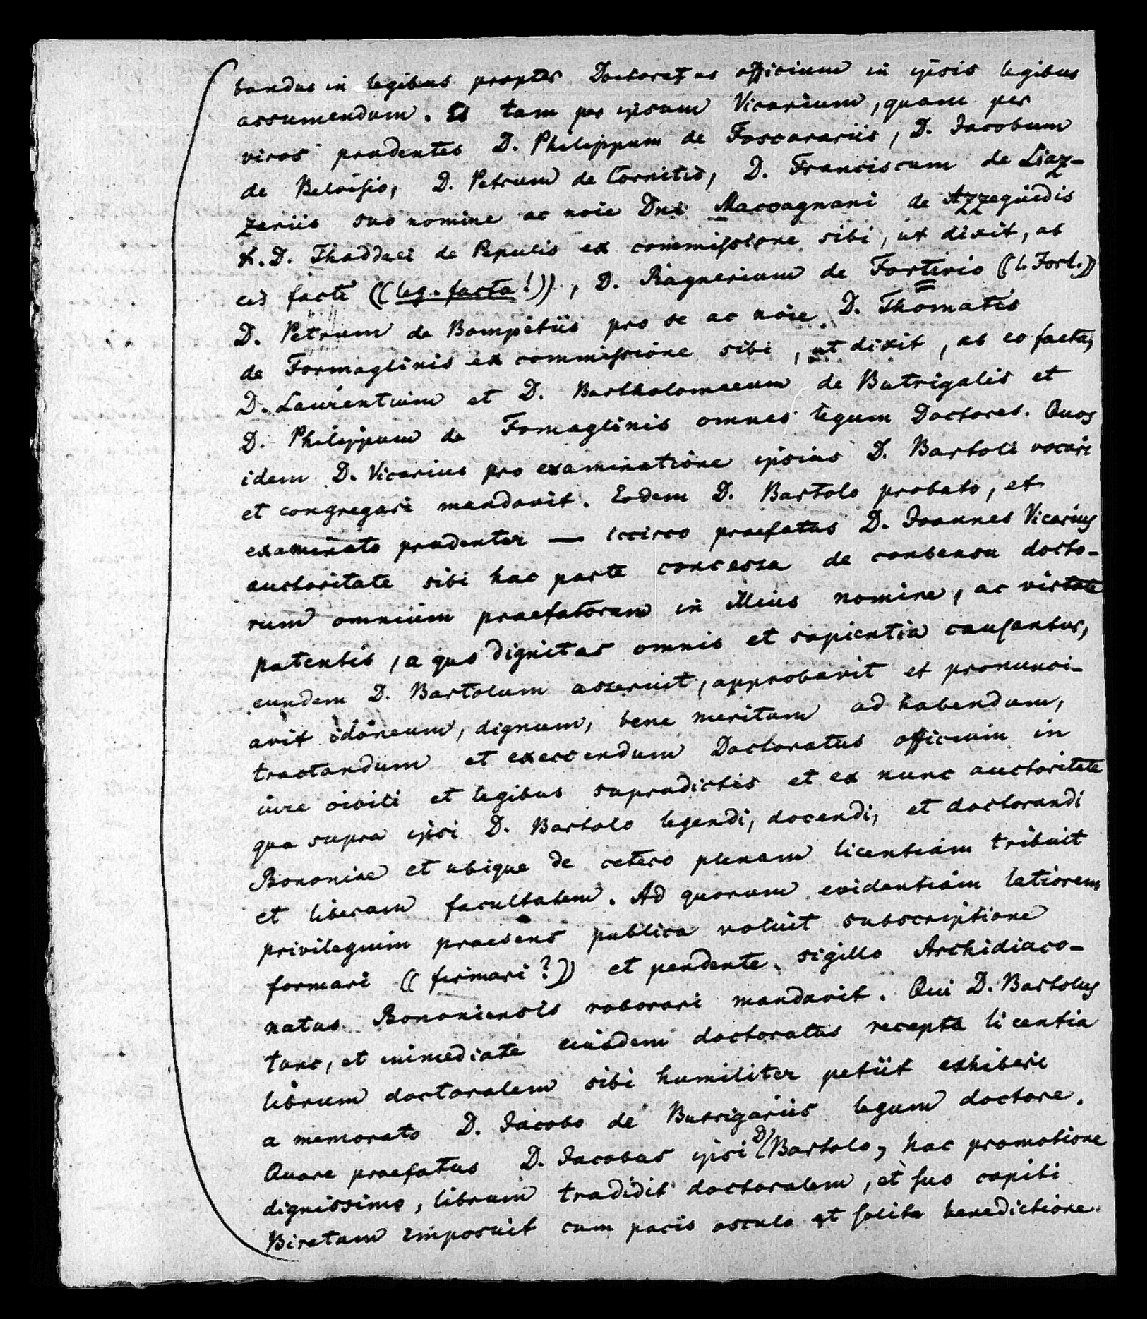 bandus in legibus propter Doctoratus officium in ipsis legibus
assumendum. Et tam per ipsum Vicarium, quam per
viros prudentes D. Philippum de Foscarariis, D. Jacobum
de Beloisio, D. Petrum de Cernitis, D. Franciscum de Liaz-
zariis suo nomine ac noie Dni Maccagnani de Azzeguidis
&. D. Thaddei de Pepulis ex commissione sibi, ut dixit, ab
eis facte ((leg. facta!)), D. Raynerium de Forlivio ((de Forl.))
D. Petrum de Bompetiis pro se ac noie D. Thomatis
de Formaglinis ex commissione sibi, ut dixit, ab eo facta,
D. Laurentium et D. Bartholomaeum de Butrigalis et
D. Philippum de Fomaglinis omnes legum Doctores. Quos
idem D. Vicarius pro examinatione ipsius D. Bartoli vocari
et congregari mandavit. Eodem D. Bartolo probato, et
examinato prudenter — iccirco praefatus D. Joannes Vicarius
auctoritate sibi hac parte concessa de consensu docto-
rum omnium praefatorum in illius nomine, ac virtute
patentis, a quo dignitas omnis et sapientia causantur,
eundem D. Bartolum asseruit, approbavit et pronunci-
avit idoneum, dignum, bene meritum ad habendum,
tractandum et exercendum Doctoratus officium in
iure civili et legibus supradictis et ex nunc auctoritate
qua supra ipsi D. Bartolo legendi, docendi, et doctorandi
Bononiae et ubique de cetero plenam licentiam tribuit
et liberam facultatem. Ad quorum evidentiam latiorem
privilegium praesens publica voluit subscriptione
formari ((firmari?)) et pendente sigillo Archidiaco-
natus Bononiensis roborari mandavit. Qui D. Bartolus
tunc, et immediate eiusdem doctoratus recepta licentia
librum doctoralem sibi humiliter petiit exhiberi
a memorato D. Jacobo de Butrigariis legum doctore.
Quare praefatus D. Jacobus ipsi D. Bartolo, hac promotione
dignissimo, librum tradidit doctoralem, et suo capiti
Biretum imposuit cum pacis osculo et solita benedictione.